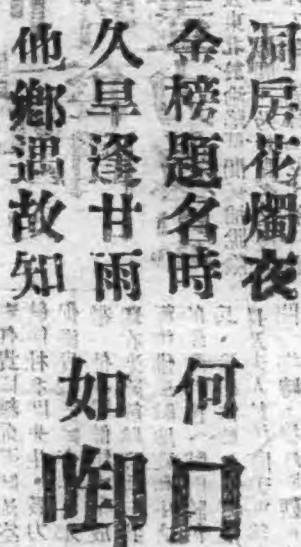 洞房花燭夜
金榜題名時
久旱逢甘雨
他鄉遇故知
何如
口啣